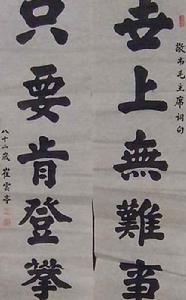 敬书毛主席詞句
世上無難事
只要肯登攀
八十二歲 崔雲